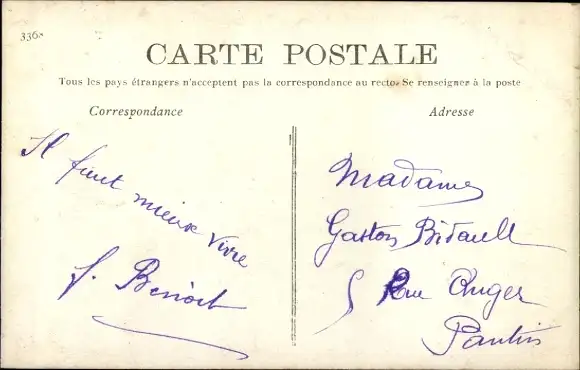 336
CARTE POSTALE
Tous les pays étrangers n'acceptent pas la correspondance au recto. Se renseigner à la poste
Correspondance
Il faut mieux vivre
J. Benoit
Adresse
Madame
Gaston Bidault
5 Rue Auger
Pantin